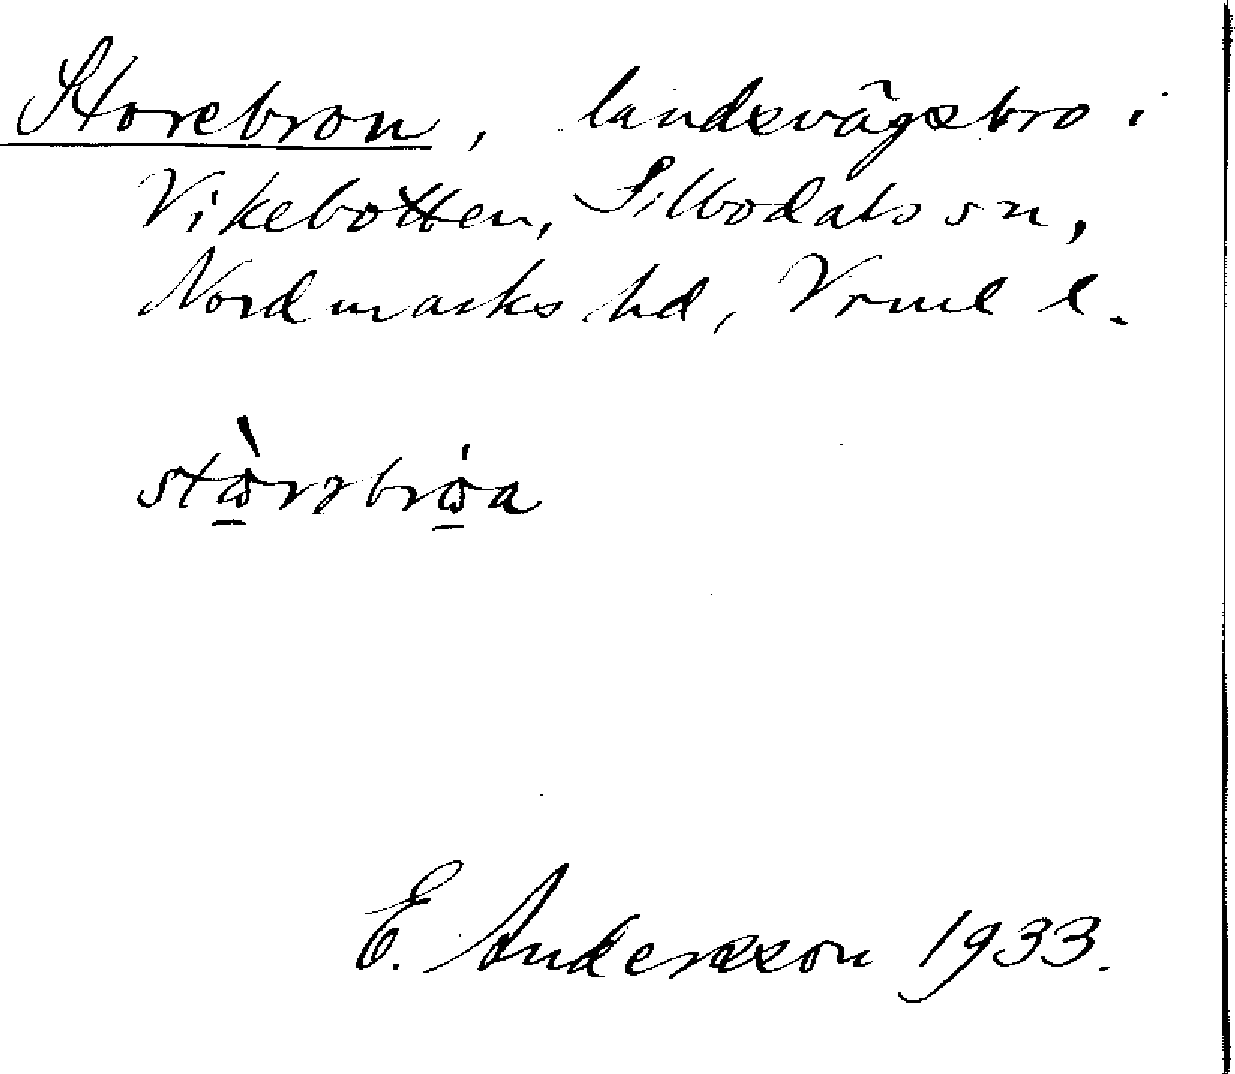 Storebron, landsvägsbro i
Vikebotten, Silbodals sn,
Nordmarks hd, Vrml l.
E. Andersson 1933.